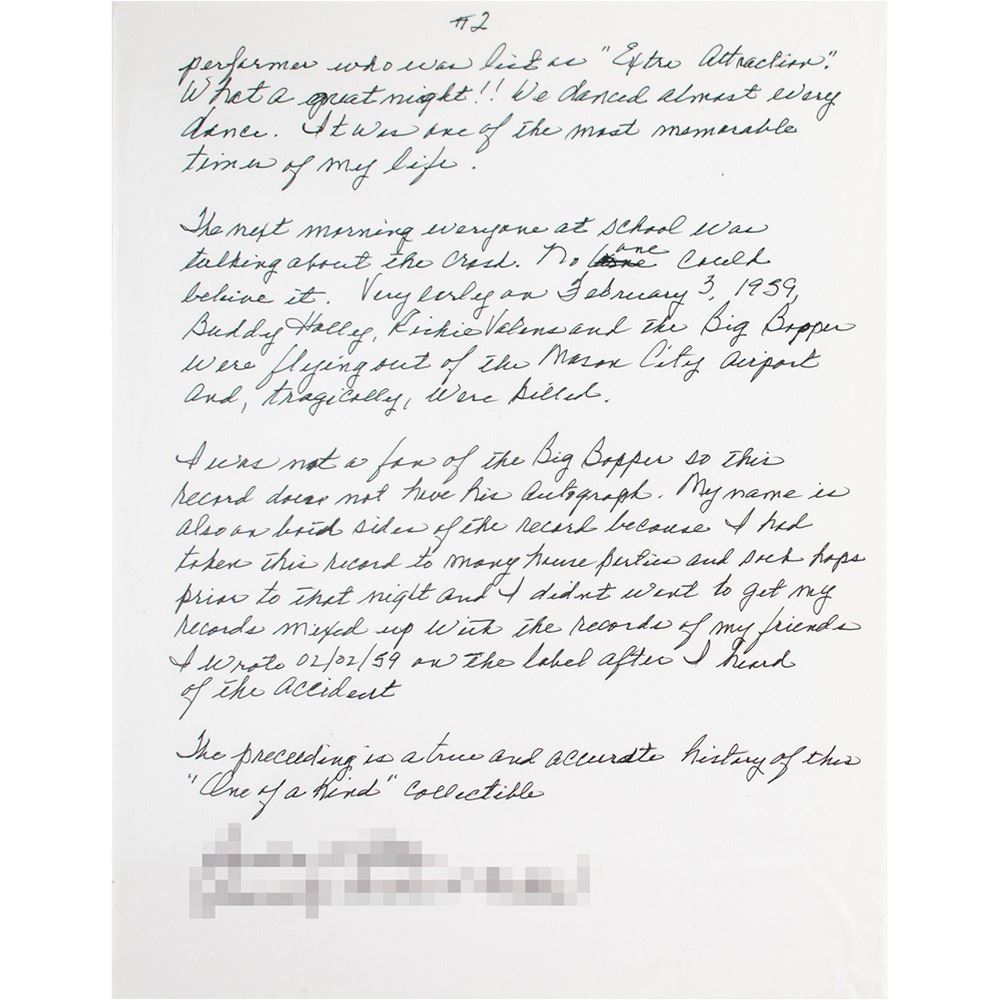 #2
performer who was list as "Extra Attraction".
What a great night!! We danced almost every
dance. It was one of the most memorable
times of my life.
The next morning everyone at school was
talking about the crash. No one could
belive it. Very erly on February 3, 1959,
Buddy Holley, Richie Valens and the Big Bopper
were flying out of the Mason City airport
and, tragically, were killed.
I was not a fan of the Big Bopper so this
record does not have his autograph. My name is
also on both sides of the record because I had
taken this record to many house parties and sock hops
prior to that night and I didnt want to get my
records mixed up with the records of my friends
I wrote 02/02/59 on the label after I heard
of the accident
The preceeding is a true and accurate history of this
"One of a Kind" collectible